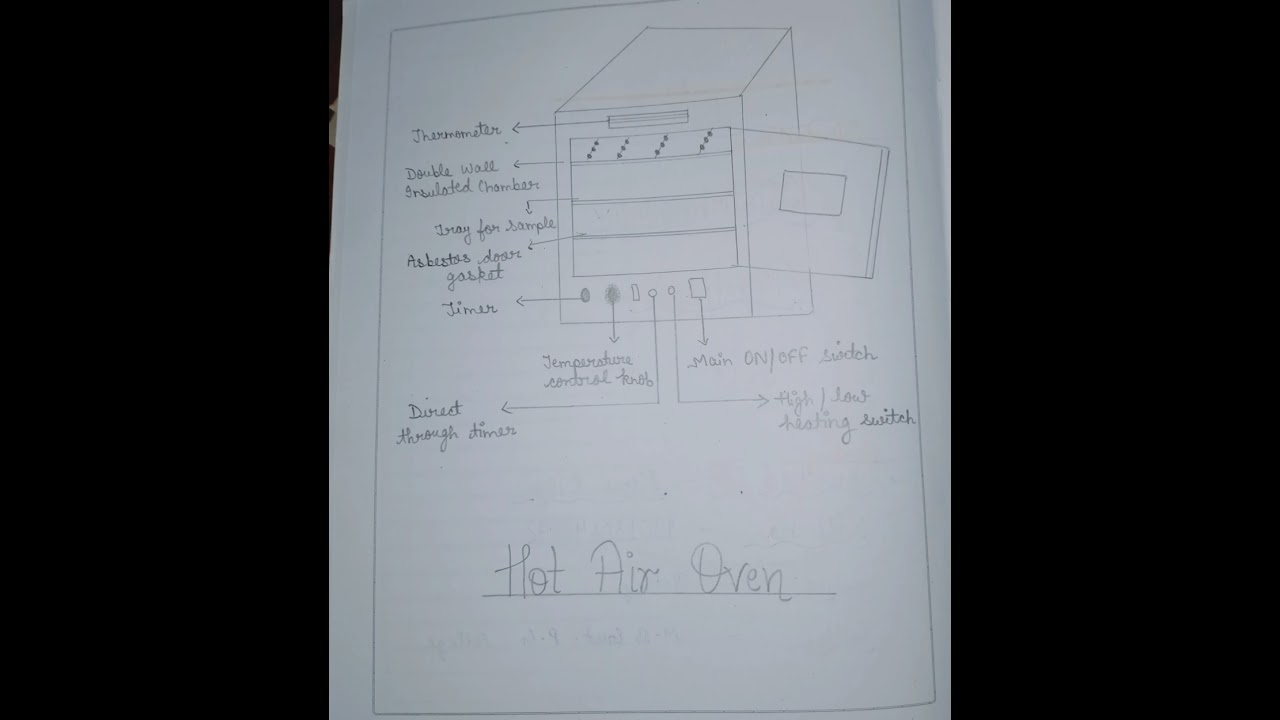 Thermometer
Double Wall
Insulated Chamber
Tray for sample
Asbestos door
gasket
Timer
Temperature
control knob
Main ON/OFF switch
Direct
through timer
High/low
heating switch
Hot Air Oven